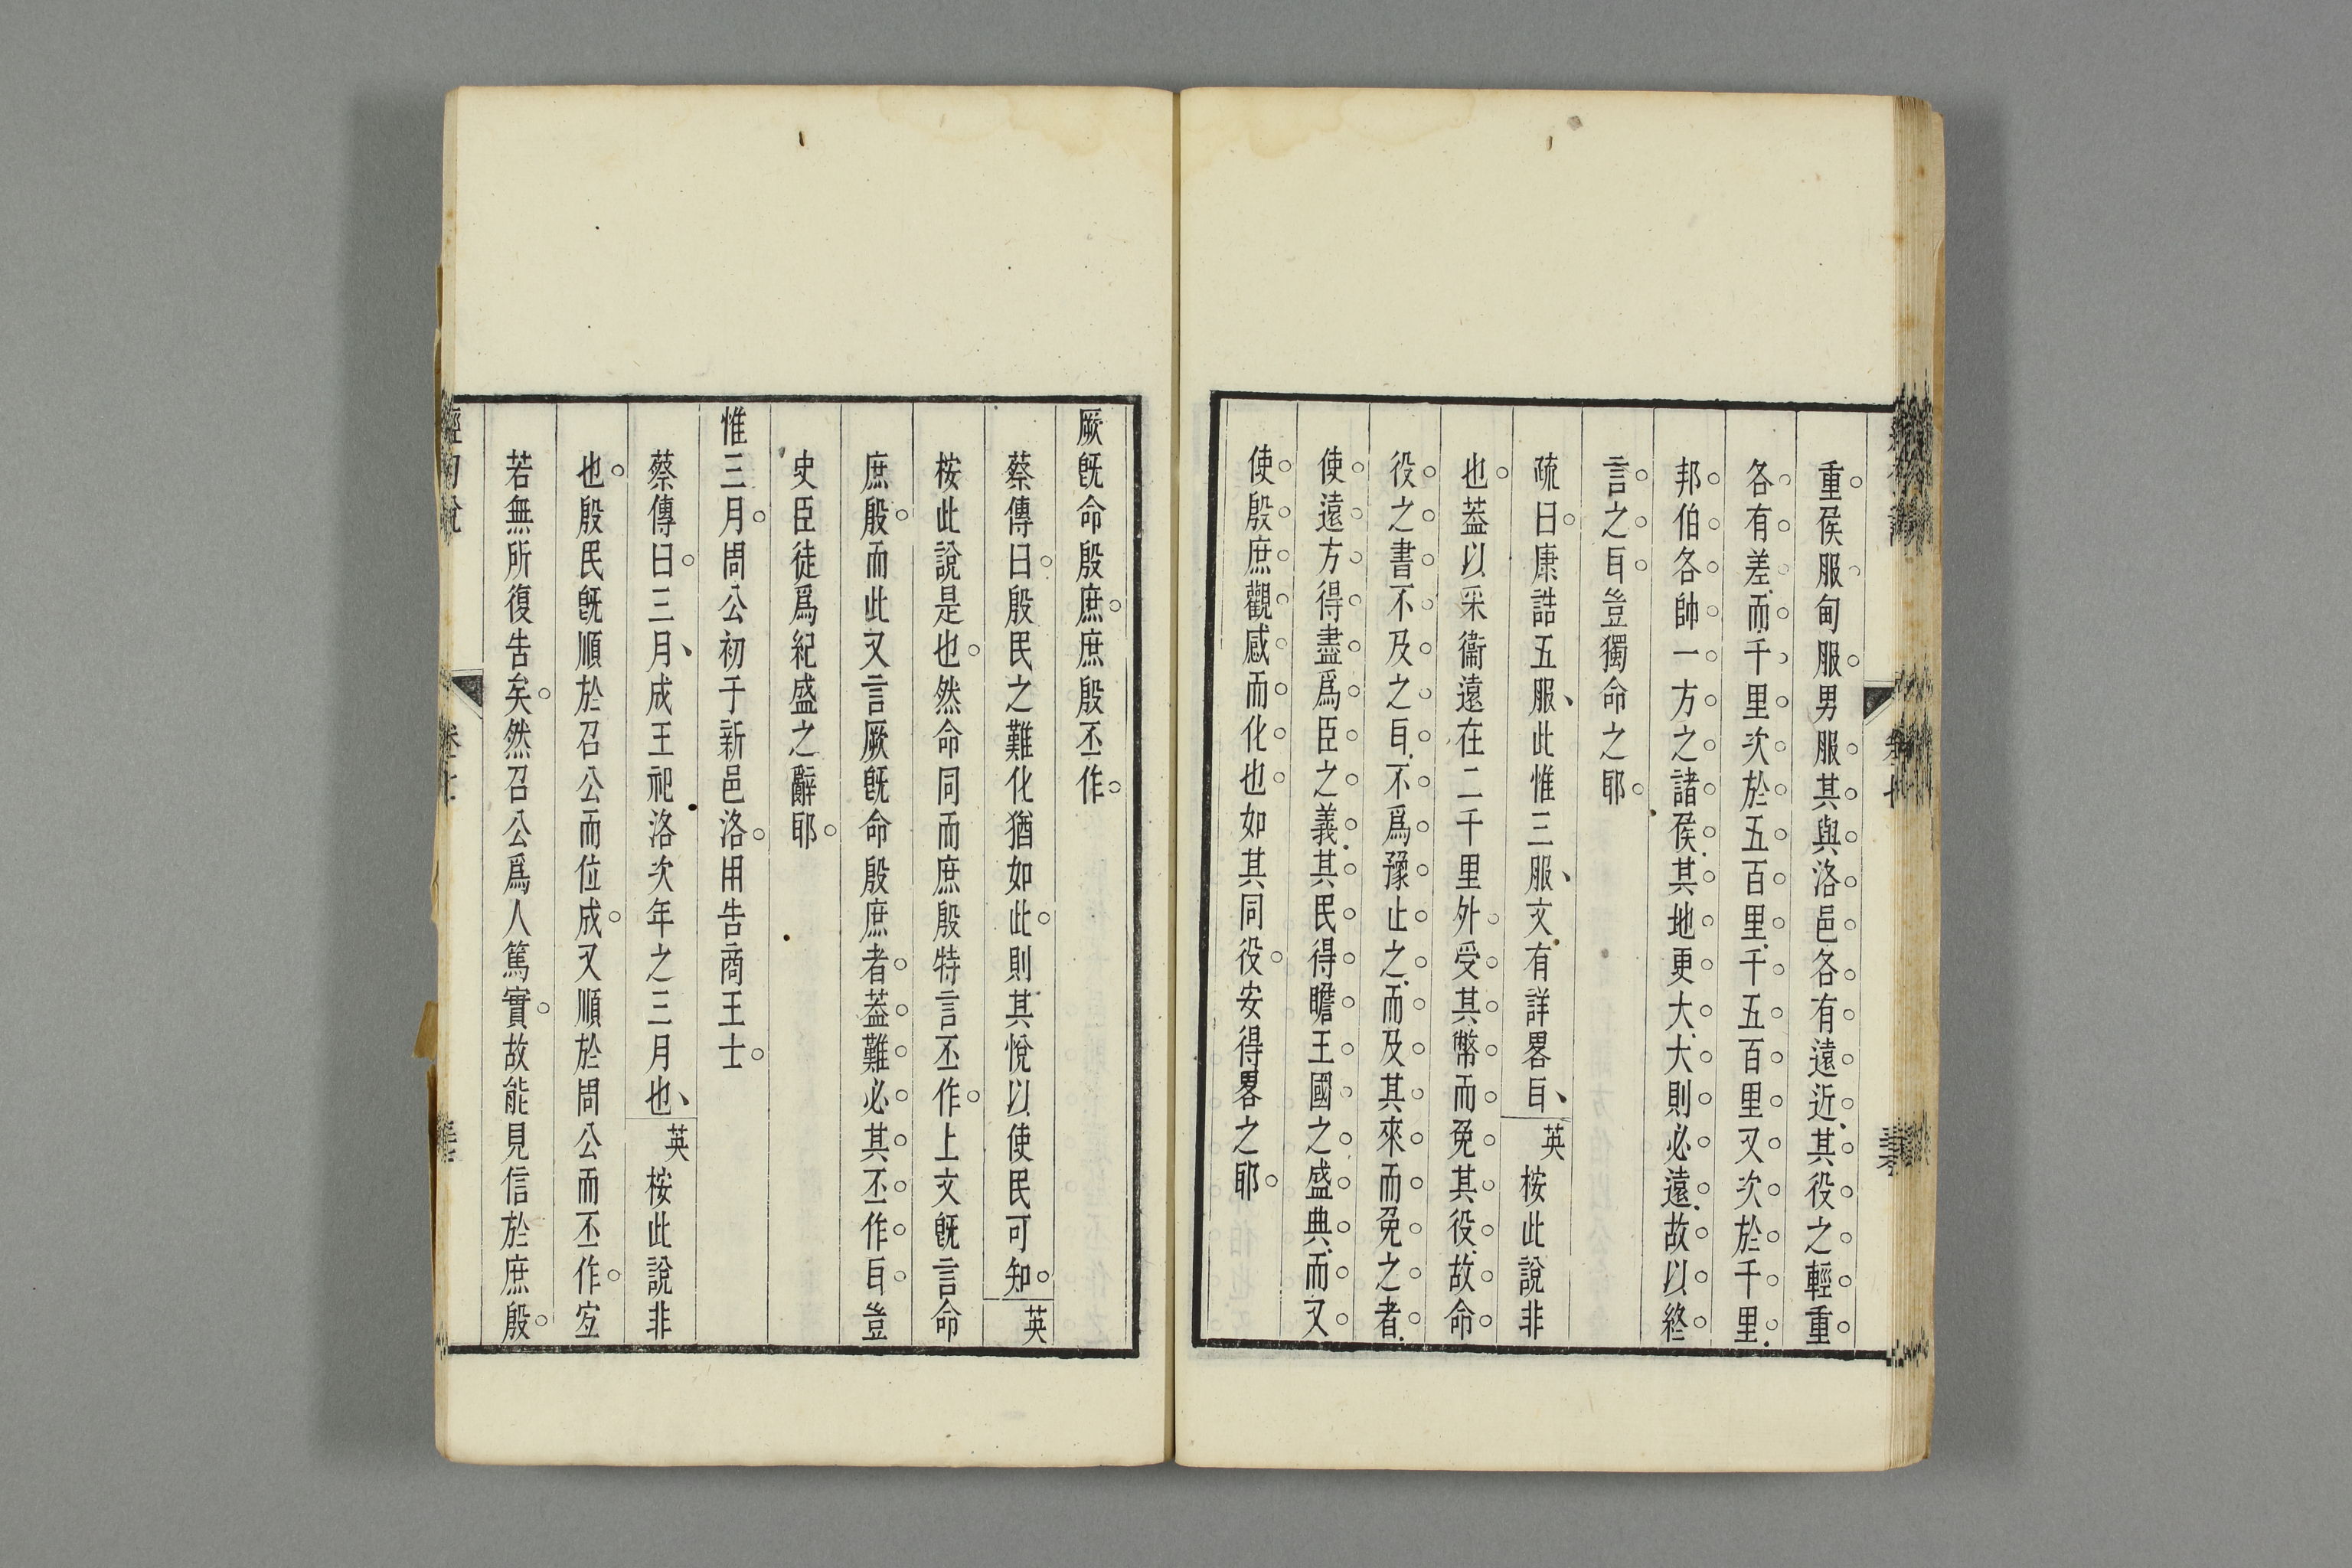 重侯服甸服男服其與洛邑各有遠近其役之輕重
各有差而千里次於五百里千五百里又次於千里
邦伯各帥一方之諸侯其地更大大則必遠故以終
言之耳豈獨命之耶
疏曰康誥五服此惟三服文有詳畧耳英桉此說非
也葢以采衞遠在二千里外受其幣而免其役故命
役之書不及之耳不爲豫止之而及其來而免之者
使遠方得盡爲臣之義其民得瞻王國之盛典而又
使殷庶觀感而化也如其同役安得畧之耶
厥旣命殷庶庶殷丕作
蔡傳曰殷民之難化猶如此則其悅以使民可知英
桉此說是也然命同而庶殷特言丕作上文旣言命
庶殷而此又言厥旣命殷庶者葢難必其丕作耳豈
史臣徒爲紀盛之辭耶
惟三月周公初于新邑洛用告商王士
蔡傳曰三月成王祀洛次年之三月也英桉此說非
也殷民旣順於召公而位成又順於周公而丕作宐
若無所復告矣然召公爲人篤實故能見信於庶殷
經句說
卷七